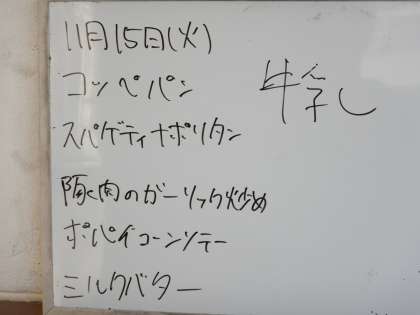 11月15日(火)
コッペパン
牛乳
スパゲティナポリタン
豚肉のガーリック炒め
ポパイコーンソテー
ミルクバター